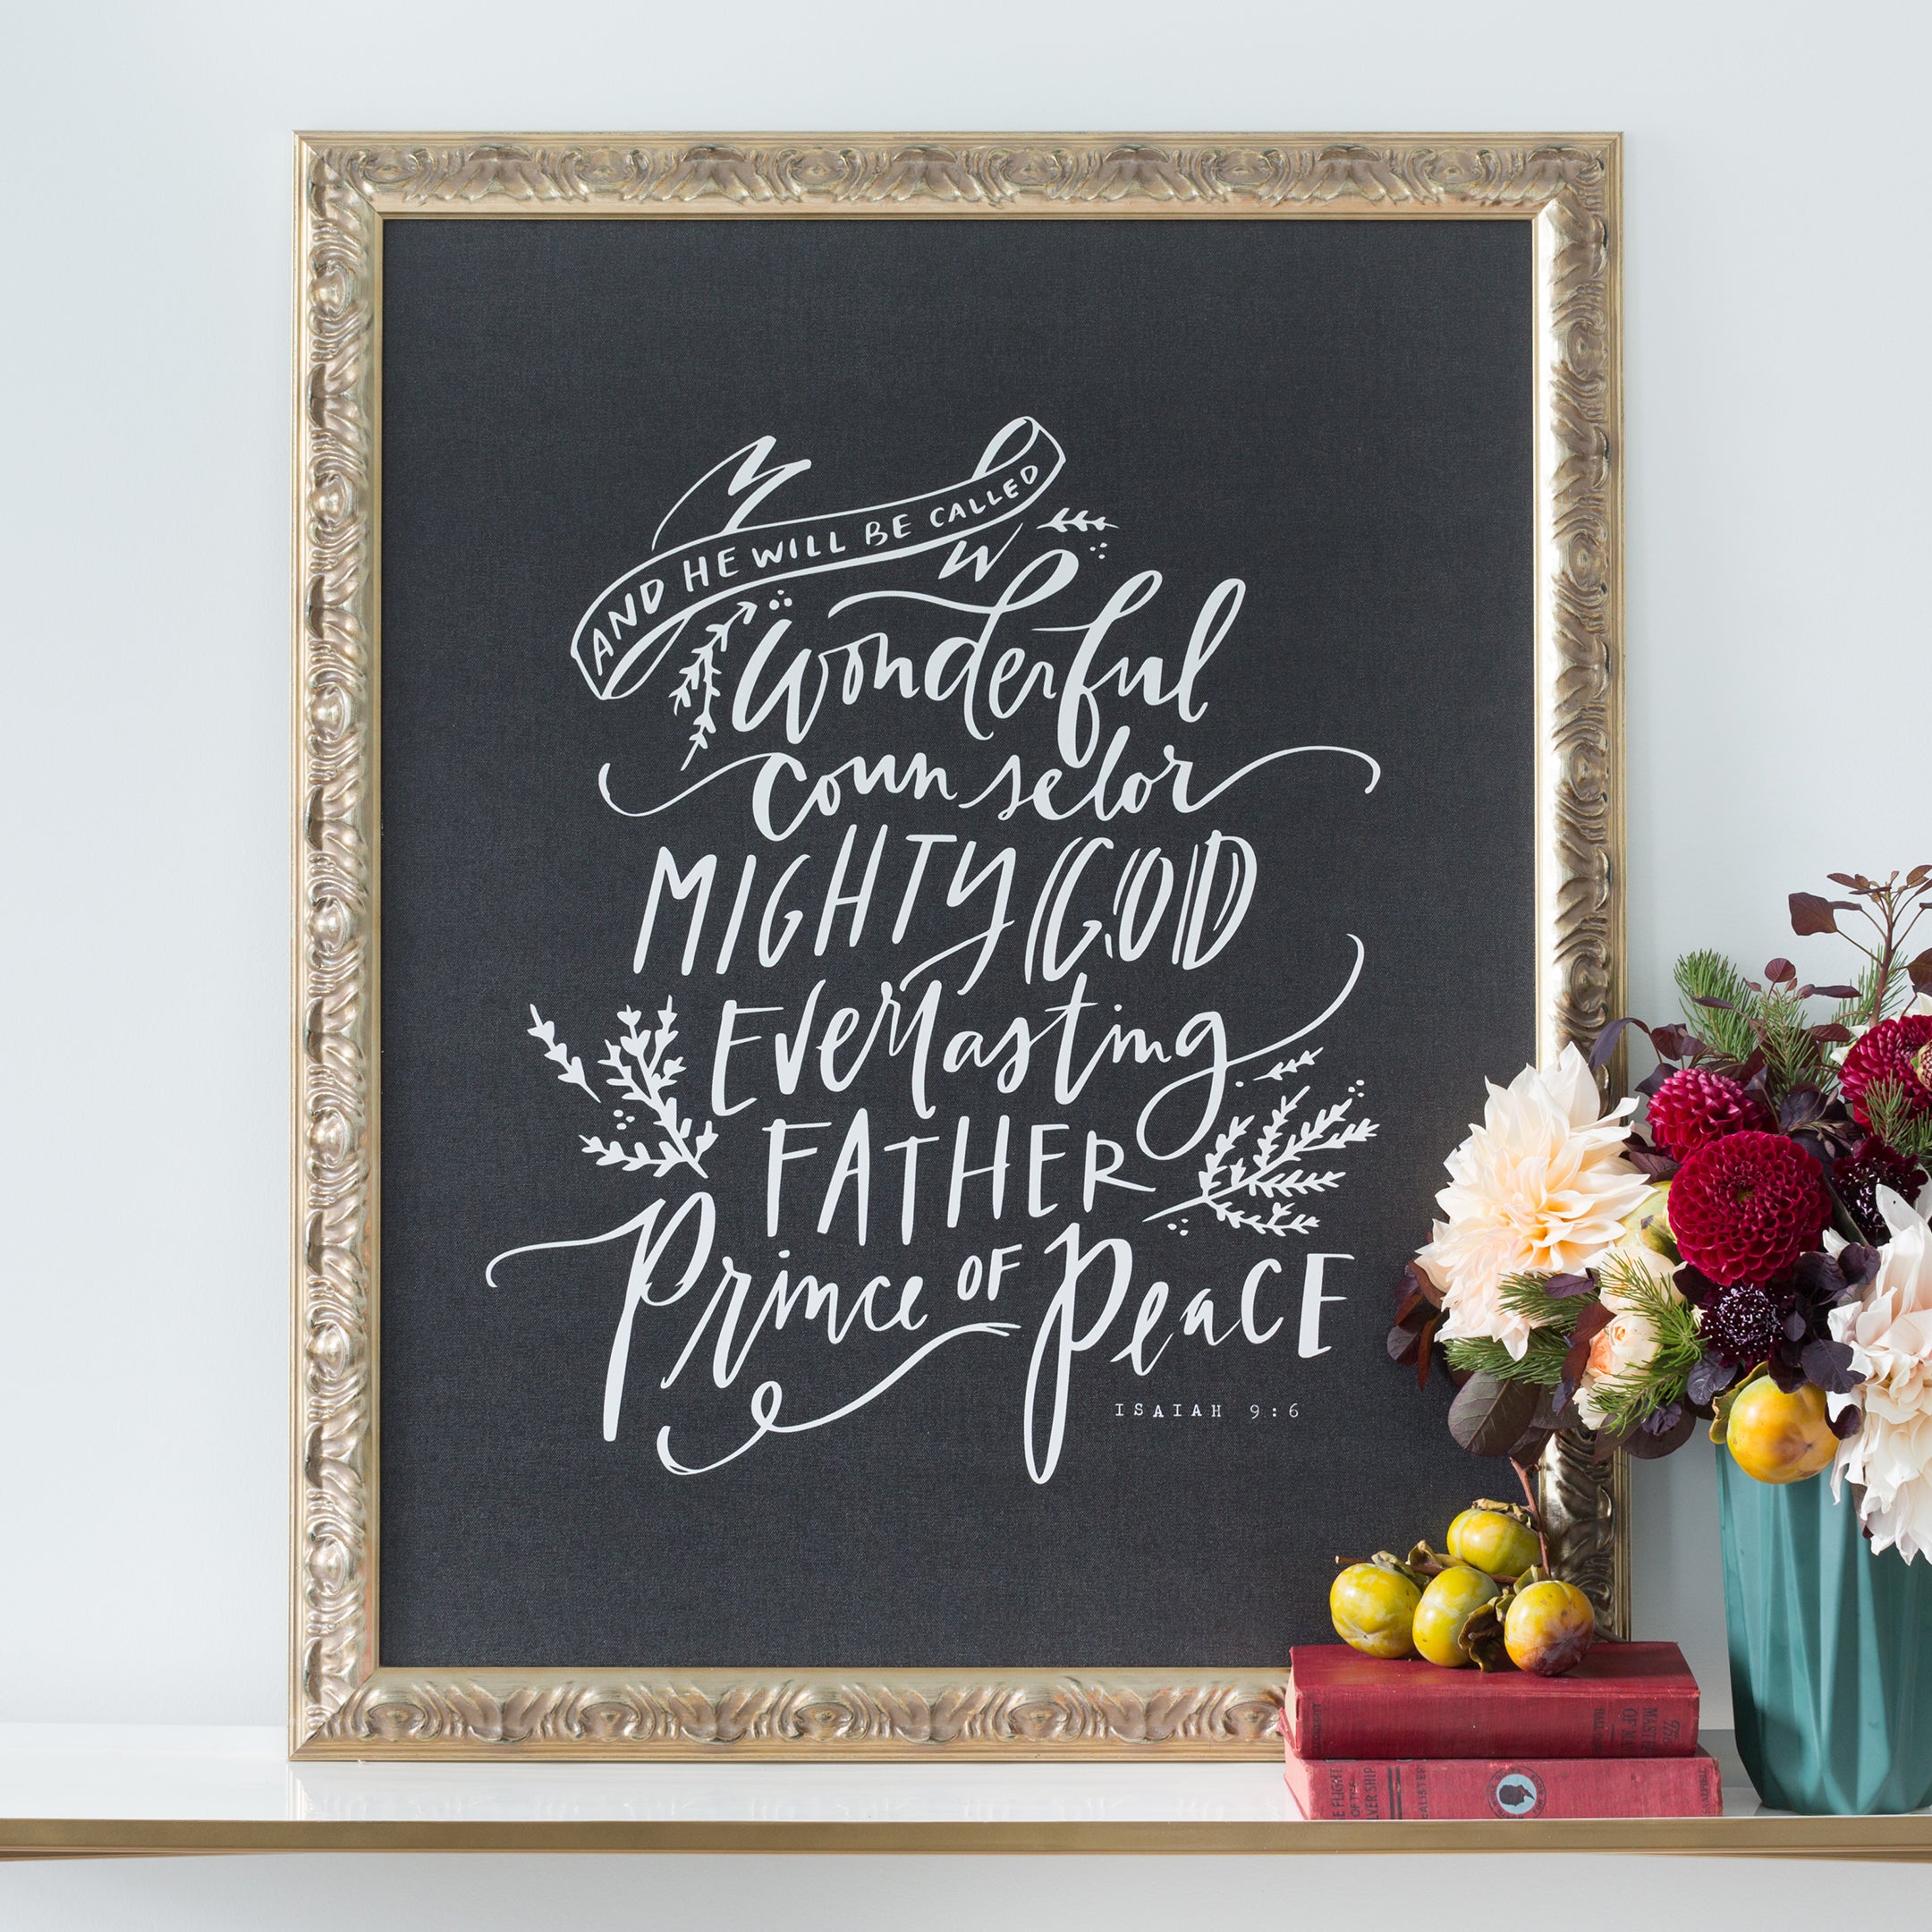 AND HE WILL BE CALLED
Wonderful
Counselor
MIGHTY GOD
Everlasting
FATHER
Prince OF PeaCE
ISAIAH 9:6
OF THE